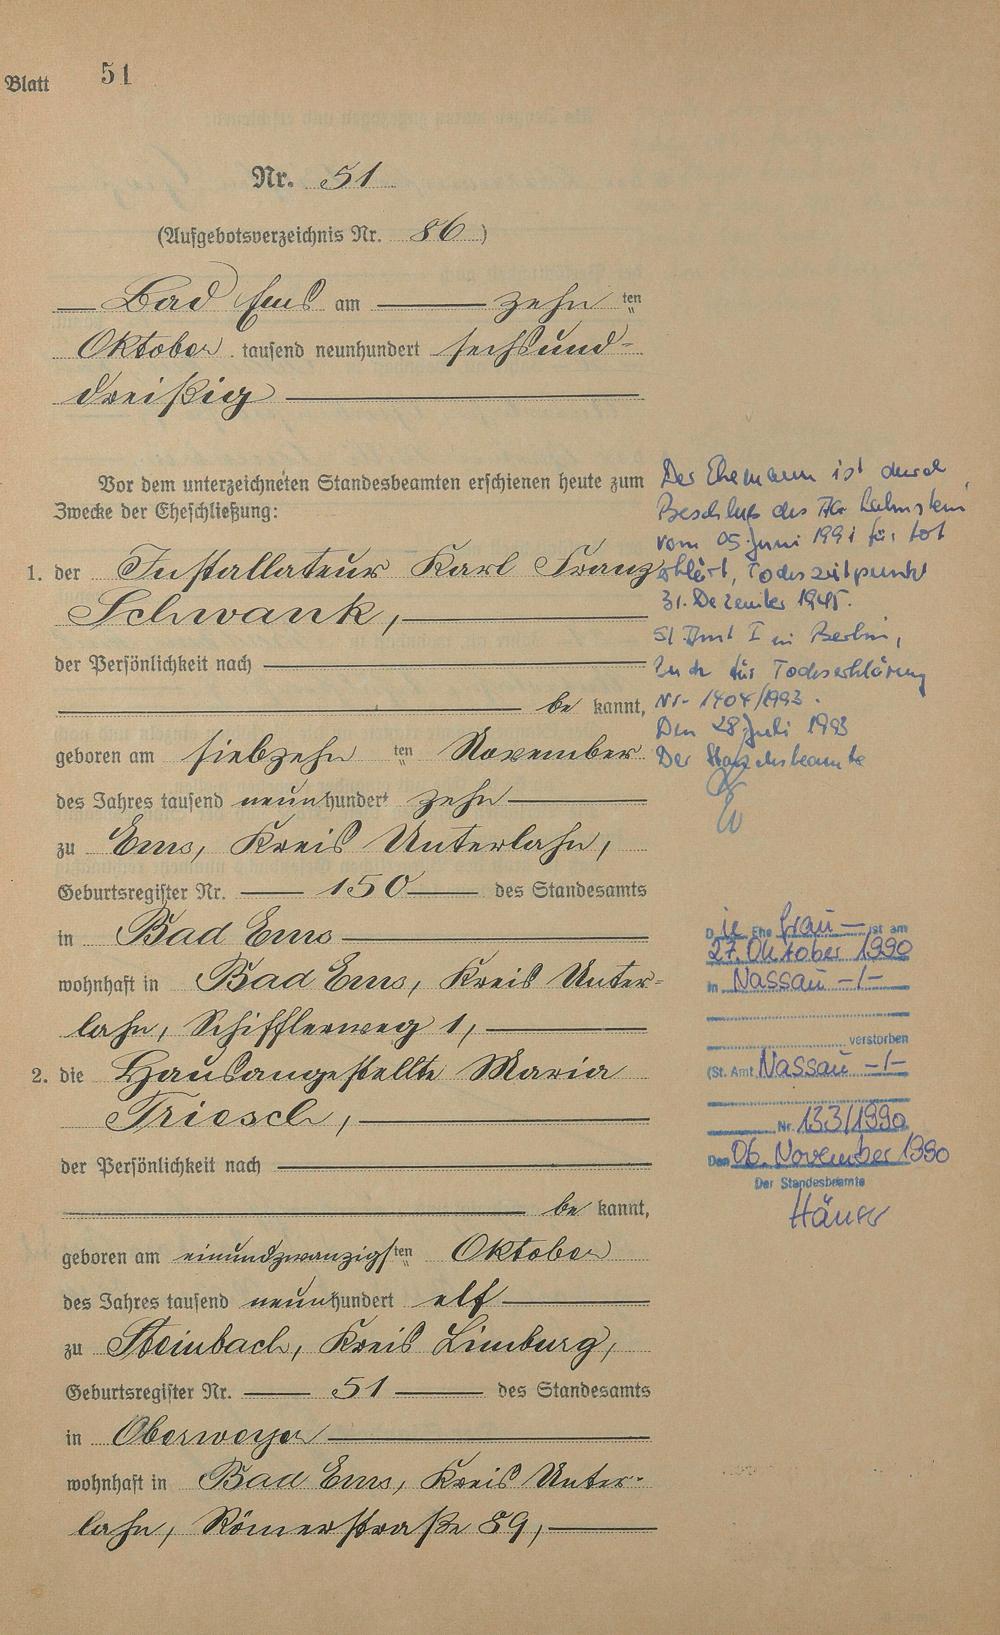 Blatt 51
Nr. 51
(Aufgebotsverzeichnis Nr. 86)
Bad Ems am zehn ten
Oktober tausend neunhundert sechsund-
dreißig
Vor dem unterzeichneten Standesbeamten erschienen heute zum
Zwecke der Eheschließung:
1. der Installateur Karl Franz
Schwank,
der Persönlichkeit nach
be kannt,
geboren am siebzehn ten November
des Jahres tausend neunhundert zehn
zu Ems, Kreis Unterlahn,
Geburtsregister Nr. 150 des Standesamts
in Bad Ems
wohnhaft in Bad Ems, Kreis Unter-
lahn, Schifflerweg 1,
2. die Hausangestellte Maria
Triesch,
der Persönlichkeit nach
be kannt,
geboren am einundzwanzigsten Oktober
des Jahres tausend neunhundert elf
zu Steinbach, Kreis Limburg,
Geburtsregister Nr. 51 des Standesamts
in Oberweyer
wohnhaft in Bad Ems, Kreis Unter-
lahn, Römerstraße 89,
Der Ehemann ist durch
Beschluß des AG Lahnstein
vom 05. Juni 1991 für tot
erklärt, Todeszeitpunkt
31. Dezember 1945.
St. Amt I in Berlin,
Buch für Todeserklärung
Nr. 1404/1993.
Den 28. Juli 1993
Der Standesbeamte
Die Ehefrau — ist am
27. Oktober 1990
in Nassau -/-
verstorben
(St. Amt Nassau -/-
Nr. 133/1990
Den 06. November 1990
Der Standesbeamte